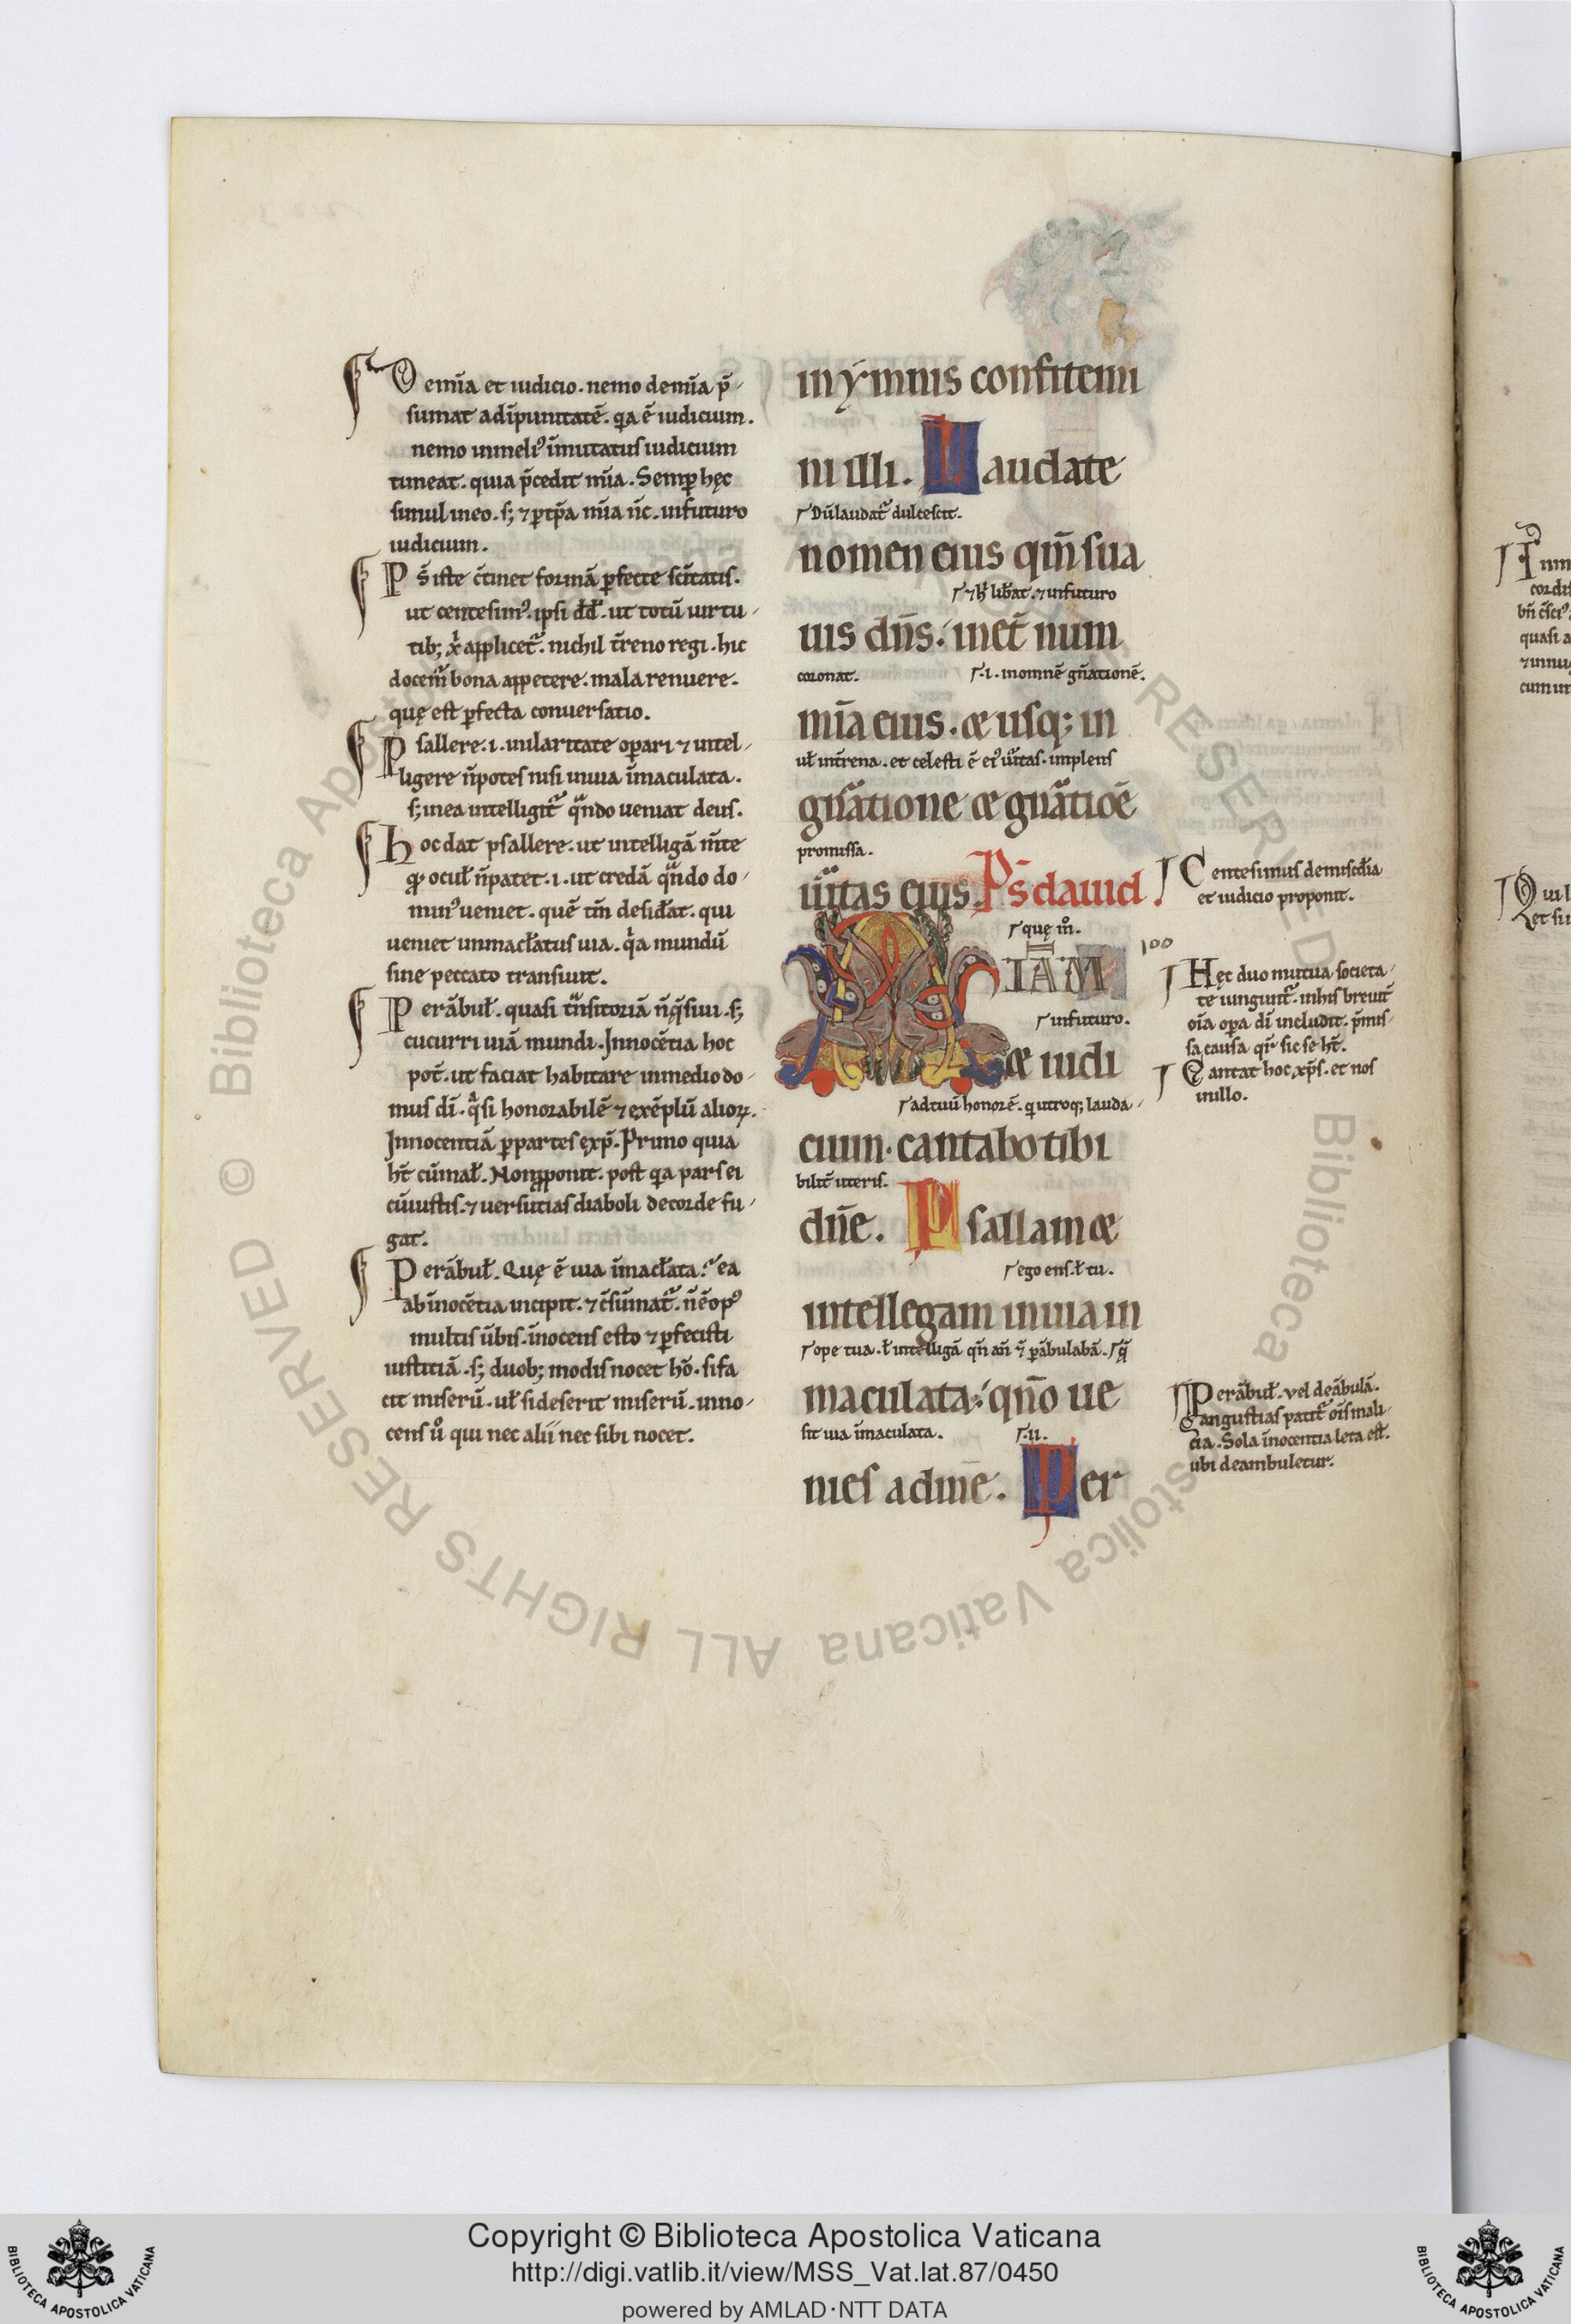 De mīa et iudicio. nemo de mīa p̄-
sumat ad īpunitatē. qa ē iudicium.
nemo in meliꝰ īmutatus iudicium
timeat. quia p̄cedit mīa. Semp hęc
simul in eo. s; ⁊ ptp̄a mīa nc̄. in futuro
iudicium.
Ps̄ iste c̄tinet formā pfecte sc̄itatis.
ut centesimꝰ. ipsi dd̄. ut totū uirtu-
tib; xp̄i applicet̄. nichil t̄reno regi. hic
docem̄ bona appetere. mala renuere.
quę est pfecta conuersatio.
Psallere. i. hilaritate opari ⁊ intel-
ligere n̄ potes nisi in uia īmaculata.
s; in ea intelligit̄ qn̄do ueniat deus.
Hoc dat psallere. ut intelligā m̄te
qꝫ ocul̄ n̄ patet. i. ut credā qn̄do do-
minꝰ ueniet. quē tm̄ desid̄at. qui
ueniet in macl̄atus uia. qia mundū
sine peccato transiuit.
Perābul̄. quasi tn̄sitoriā n̄ q̄siui. s;
cucurri uiā mundi. Innocētia hoc
pot̄. ut faciat habitare in medio do-
mus dī. qasi honorabilē ⁊ exēplū alioꝝ.
Innocentiā p partes exp̄. Primo quia
ht̄ cū mal̄. Non pponit. post qa pars ei
cū iustis. ⁊ uersutias diaboli de corde fu-
gat.
Perābul̄. Quę ē uia īmacl̄ata. ea
ab īnocētia incipit. ⁊ c̄sūmat̄. n̄ ē opꝰ
multis ūbis. īnocens esto ⁊ pfecisti
iustitiā. s; duob; modis nocet hō. si fa-
cit miserū. ul̄ si deserit miserū. inno-
cens ū qui nec alii nec sibi nocet.
in ymnis confitemi
ni illi. Laudate
Dū laudat̄ dulcescit.
nomen eius qm̄ sua
⁊ h̄ lib̄at. ⁊ in futuro
uis dn̄s. in et̄ num
coronat. .i. in omnē gn̄ationē.
mīa eius. æ usq; in
ul̄ in t̄rena. et celesti ē eiꝰ ūitas. implens
gn̄atione æ gn̄atiōē
promissa.
ūitas eius. Ps̄ dauid
quę m̊.
MIS̄IAM
in futuro.
æ iudi
ad tuū honorē. qi utroq; lauda-
cium. cantabo tibi
bilit̄ uteris.
dn̄e. Psallam æ
ego ens. ł tu.
intellegam in uia in
ope tua. ł intelligā qn̄ an̄ ⁊ pābulabā.
maculata. qn̄o ue
sit uia īmaculata. .ii.
nies ad mē. Per
Centesimus de miscd̄ia
et iudicio proponit.
100
Hęc duo mutua societa-
te iungunt̄. in his breuit̄
oīa opa dī includit. p̄mis-
sa causa qr̄ sic se ht̄.
Cantat hoc xp̄s. et nos
in illo.
Perābul̄. vel deābulā.
angustias patit̄ oīs mali-
cia. Sola īnocentia leta est.
ubi deambuletur.
Copyright © Biblioteca Apostolica Vaticana
http://digi.vatlib.it/view/MSS_Vat.lat.87/0450
powered by AMLAD·NTT DATA
BIBLIOTECA APOSTOLICA VATICANA
BIBLIOTECA APOSTOLICA VATICANA
© Biblioteca Apostolica Vaticana ALL RIGHTS RESERVED